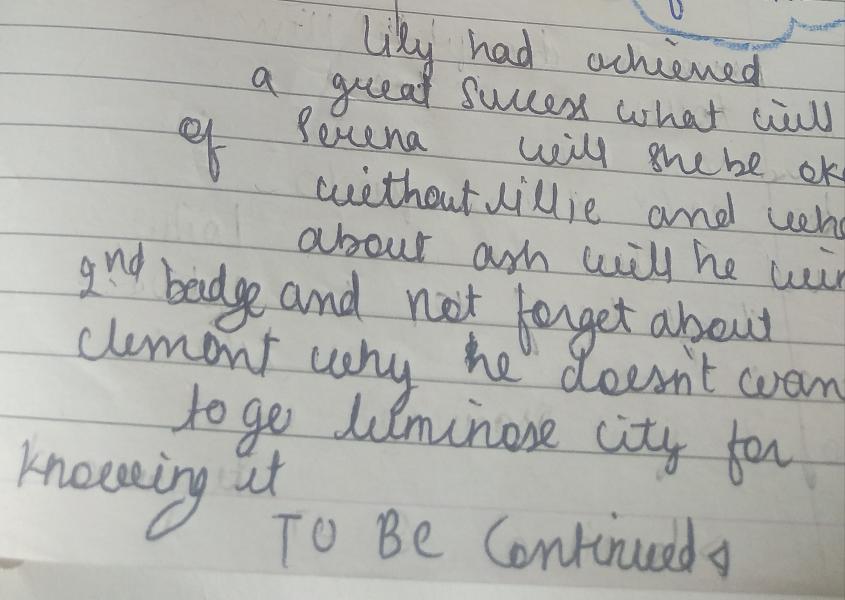 Lily had achieved
a great success what will
of Serena will she be ok
without Lillie and wh
about ash will he win
2nd badge and not forget about
clemont why he doesn't wan
to go luminose city for
knowing it
TO BE Continued